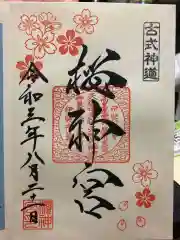 古式神道
桜神宮
令和三年八月二二日